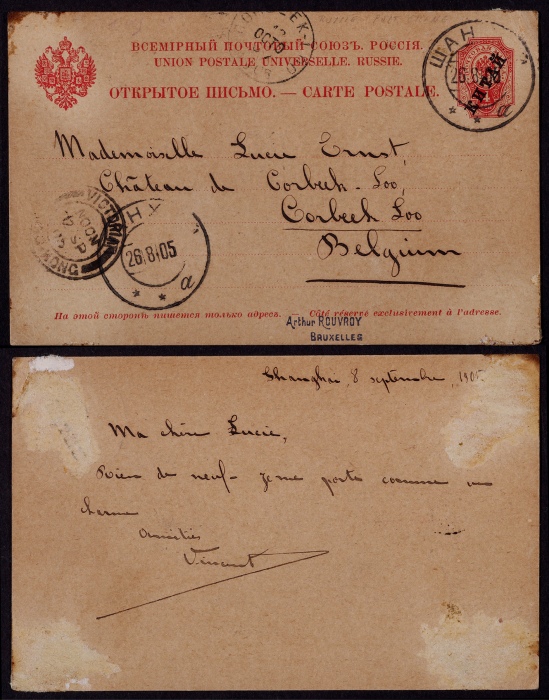 ВСЕМІРНЫЙ ПОЧТОВЫЙ СОЮЗЪ. РОССІЯ.
UNION POSTALE UNIVERSELLE. RUSSIE.
ОТКРЫТОЕ ПИСЬМО. — CARTE POSTALE.
ШАН
26.8
а
КИТАЙ
Mademoiselle Lucie Ernst,
Château de Corbeek-Loo,
Corbeek Loo
Belgium
VICTORIA
HONG KONG
НА
26.8.05
а
На этой сторонѣ пишется только адресъ. — Côté réservé exclusivement à l'adresse.
Arthur ROUVROY
BRUXELLES
Shanghai, 8 septembre, 1905
Ma chère Lucie,
Rien de neuf – Je me porte comme un
charme
Amitiés
Vincent